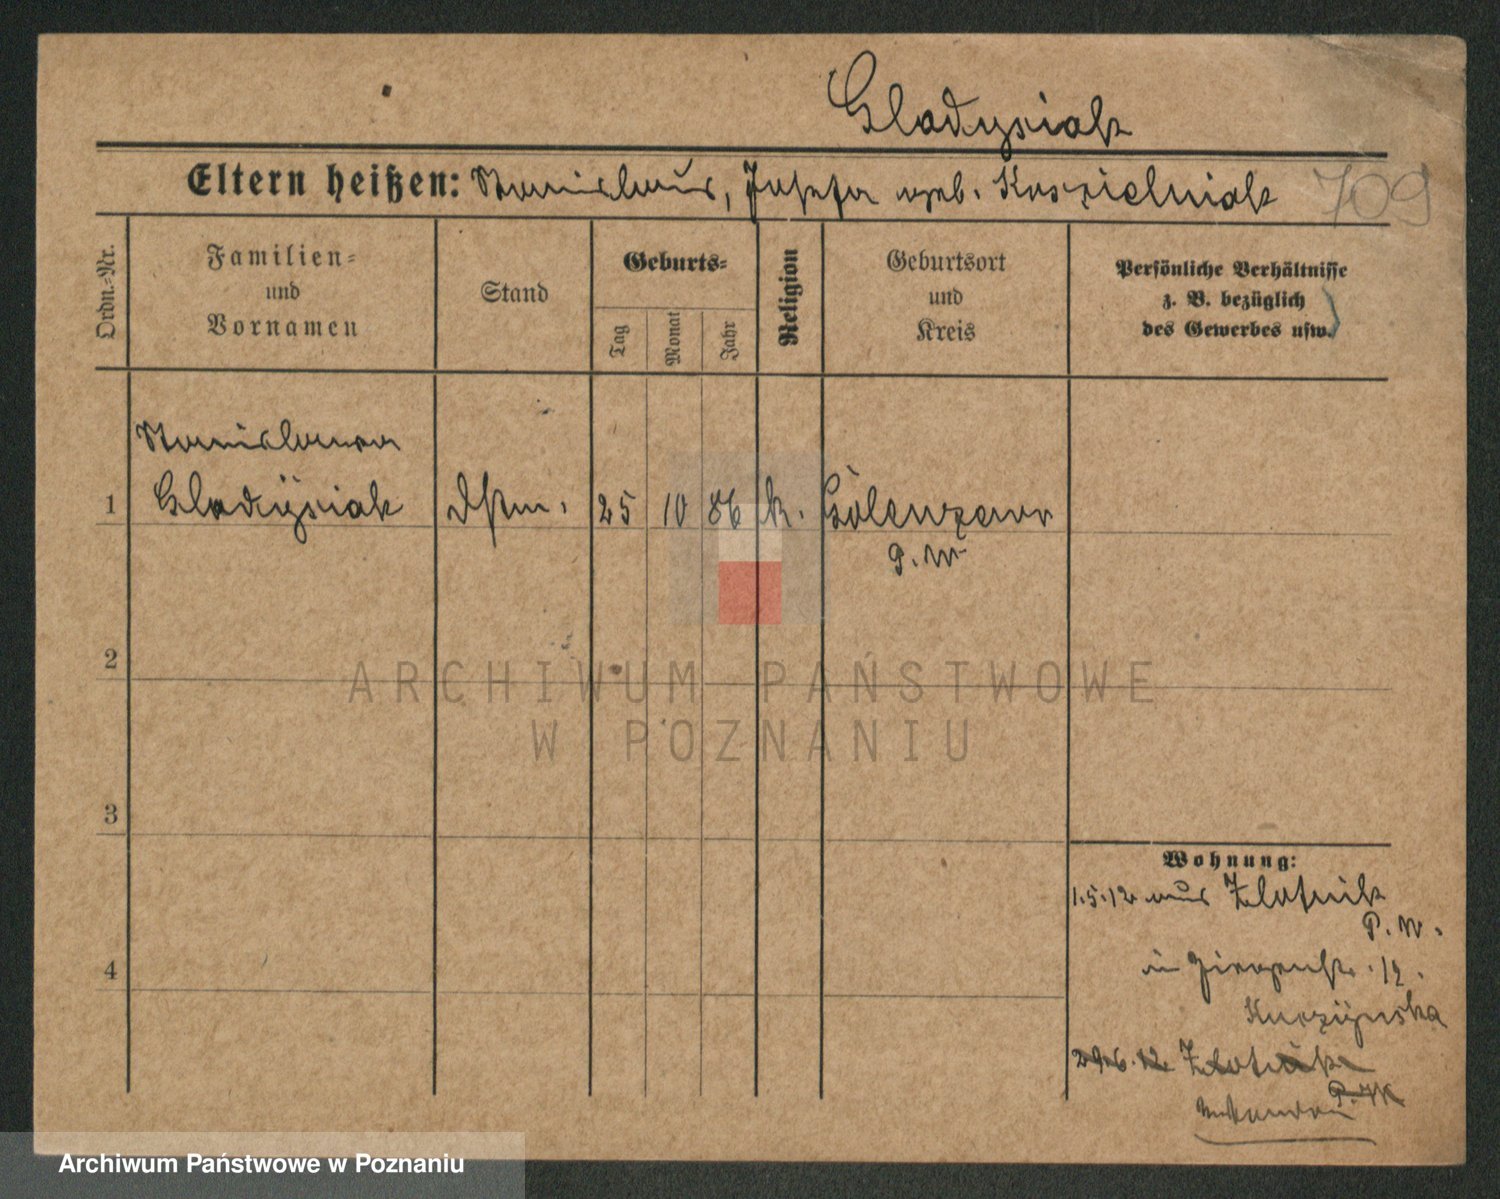 Gladysiak
Eltern heißen: Stanislaus, Josefa geb. Koszielniak 709
Ordn.-Nr.
Familien-
und
Vornamen
Stand
Geburts-
Tag
Monat
Jahr
Religion
Geburtsort
und
Kreis
Persönliche Verhältnisse
z. B. bezüglich
des Gewerbes usw.
Stanislawa
1 Gladysiak Dstm. 25 10 86 k. Golenzewo
P. W
2
ARCHIWUM PAŃSTWOWE
W POZNANIU
3
Wohnung:
1.5.12 aus Zlotnik
P. W.
4
in
Kuczynska
29.6.12 Zlotnik
P. W
Archiwum Państwowe w Poznaniu